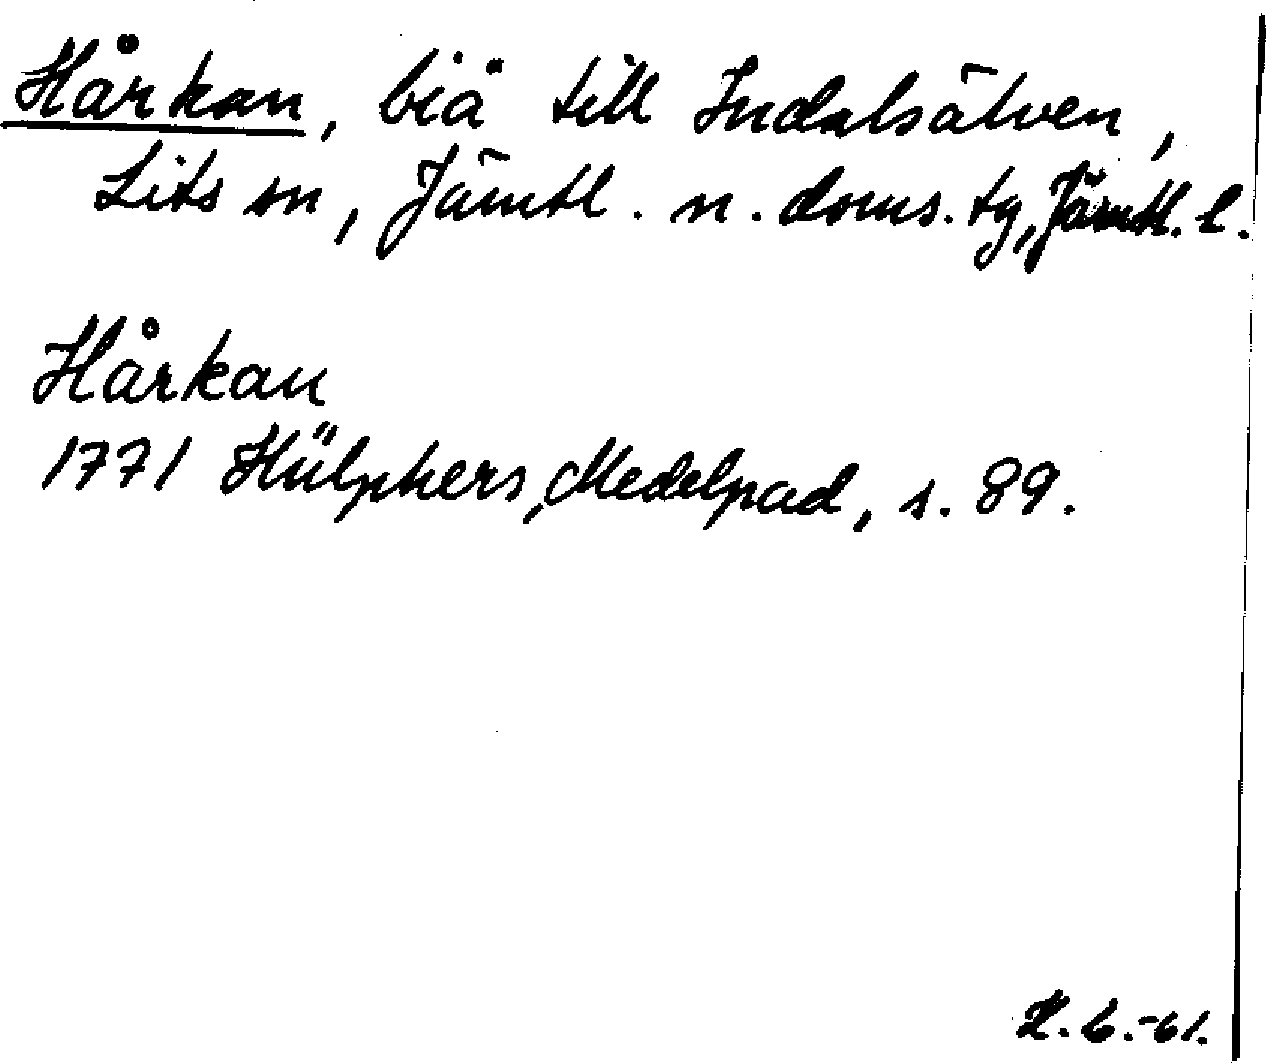 Hårkan, biä till Indalsälven,
Lits sn, Jämtl. n. doms. tg, Jämtl. l.
Hårkan
1771 Hülphers, Medelpad, s. 89.
H. G. -61.